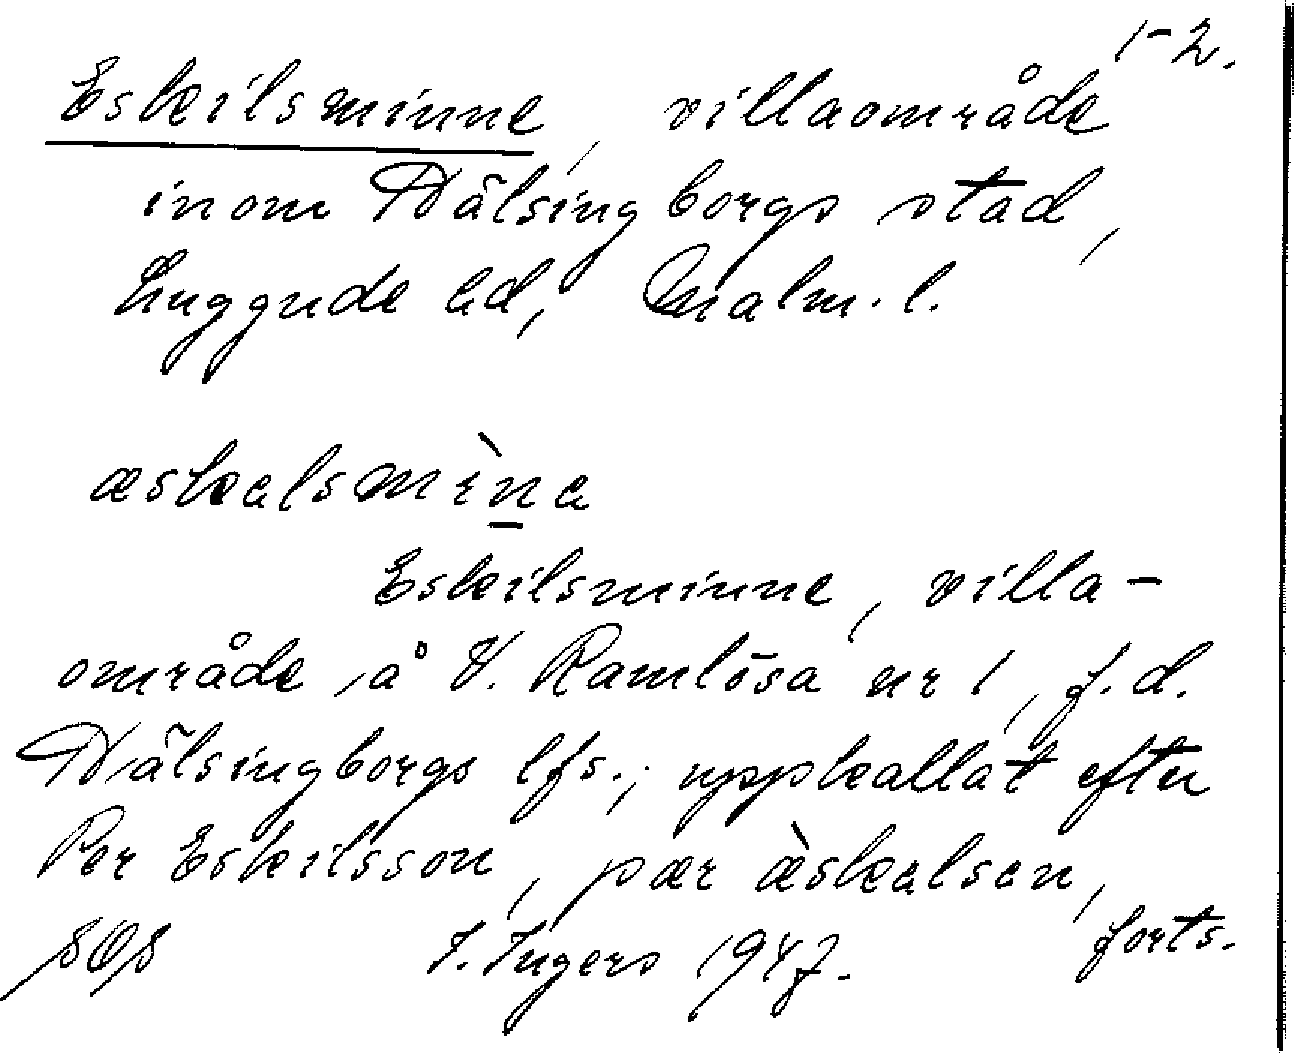 1-2.
Eskilsminne, villaområde
inom Hälsingborgs stad,
Luggude hd, Malm. l.
æskalsmìna
Eskilsminne, villa-
område å V. Ramlösa nr 1, f.d.
Hälsingborgs lfs.; uppkallat efter
Per Eskilsson, pær æ̀skalsan,
I. Ingers 1947. forts.